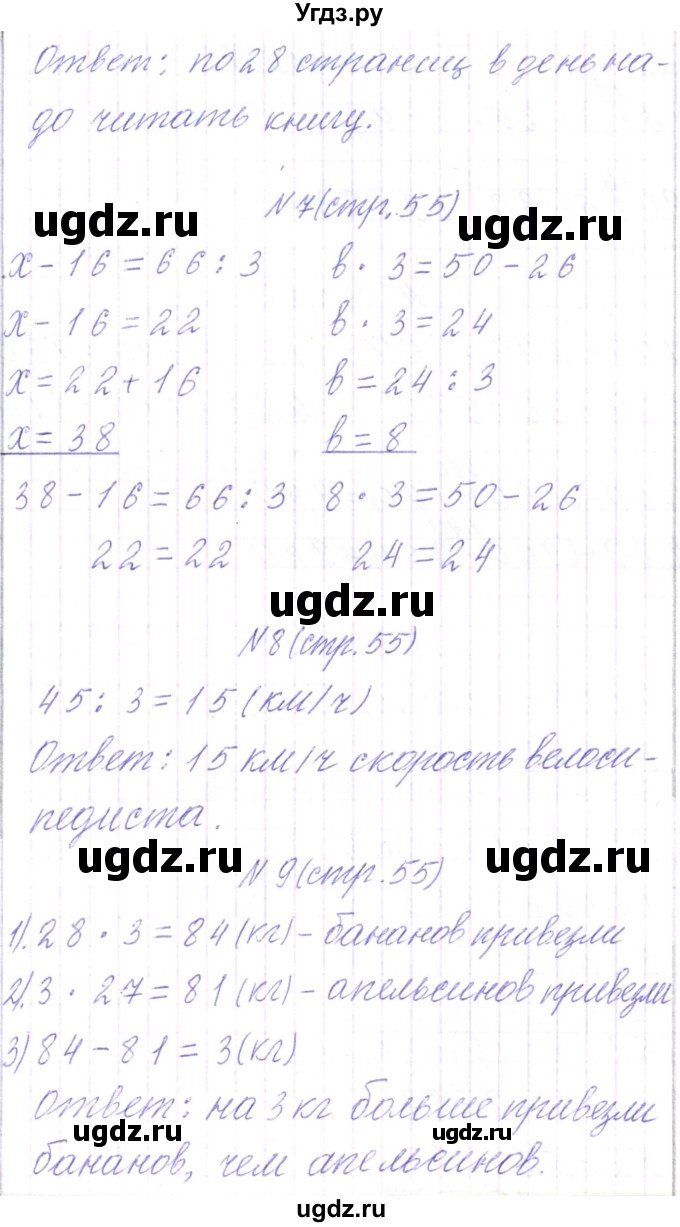 Угдз.ру
Ответ: по 28 страниц в день на-
до читать книгу.
N7(стр.55)
ugdz.ru ugdz.ru
x-16=66:3 в·3=50-26
x-16=22 в·3=24
x=22+16 в=24:3
x=38 в=8
38-16=66:3 8·3=50-26
22=22 24=24
ugdz.ru
N8(стр.55)
45:3=15(км/ч)
Ответ: 15 км/ч скорость велоси-
педиста.
ugdz.ru ugdz.ru
N9(стр.55)
1).28·3=84(кг)-бананов привезли
2).3·27=81(кг)-апельсинов привезли
3)84-81=3(кг)
Ответ: на 3 кг больше привезли
ugdz.ru ugdz.ru
бананов, чем апельсинов.
ugdz.ru